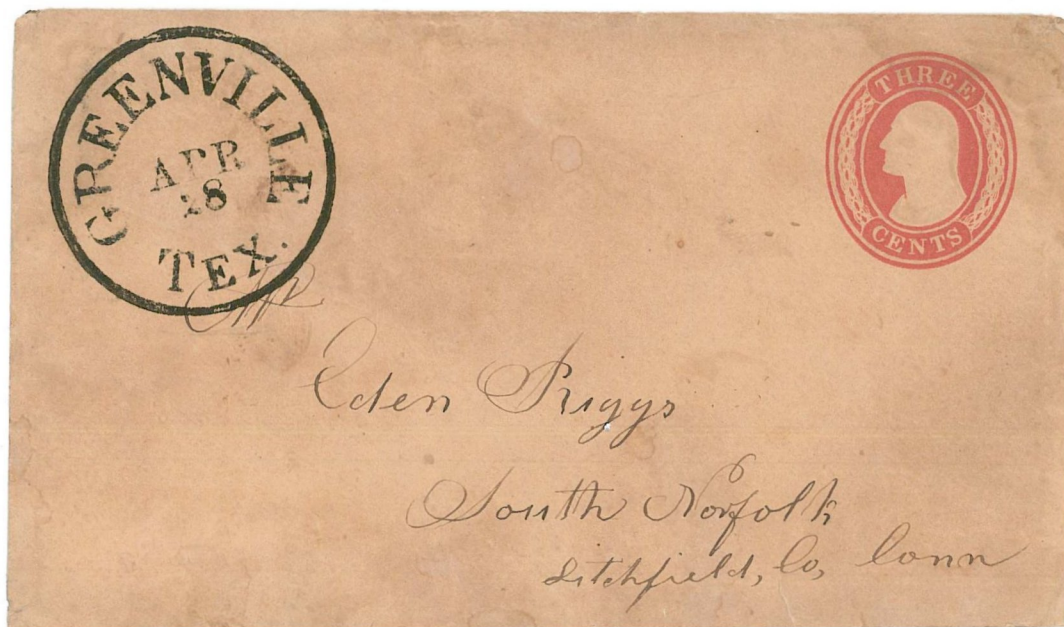 GREENVILLE
APR
18
TEX.
THREE
CENTS
Mr
Eden Riggs
South Norfolk
Litchfield, Co, Conn